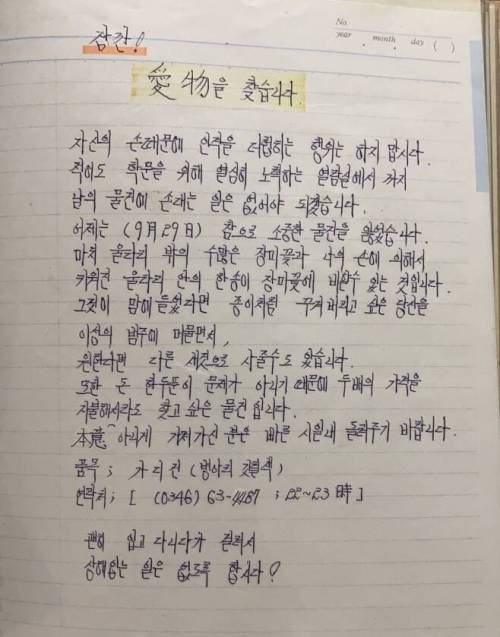 No.
year . month . day ( )
잠깐!
愛物을 찾습니다.
자신의 손때문에 인격을 더럽히는 행위는 하지 맙시다.
적어도 학문을 위해 열심히 노력하는 열람실에서 까지
남의 물건에 손대는 일은 없어야 되겠습니다.
어제는 (9月 29日) 참으로 소중한 물건을 잃었습니다.
마치 울타리 밖의 수많은 장미꽃과 나의 손에 의해서
키워진 울타리 안의 한송이 장미꽃에 비할수 있는 것입니다.
그것이 맘에 들었다면 종이처럼 구겨버리고 싶은 당신을
이성의 범주에 머물면서,
원한다면 다른 새것으로 사줄수도 있습니다.
또한 돈 한두푼이 문제가 아니기 때문에 두배의 가격을
지불해서라도 찾고 싶은 물건 입니다.
本意 아니게 가져가신 분은 빠른 시일내 돌려주기 바랍니다.
품목 ; 가디건 (병아리 깃털색)
연락처 ; [ (0346) 63-4487 ; 22~23 時 ]
괜히 입고 다니다가 걸려서
상해입는 일은 없도록 합시다!